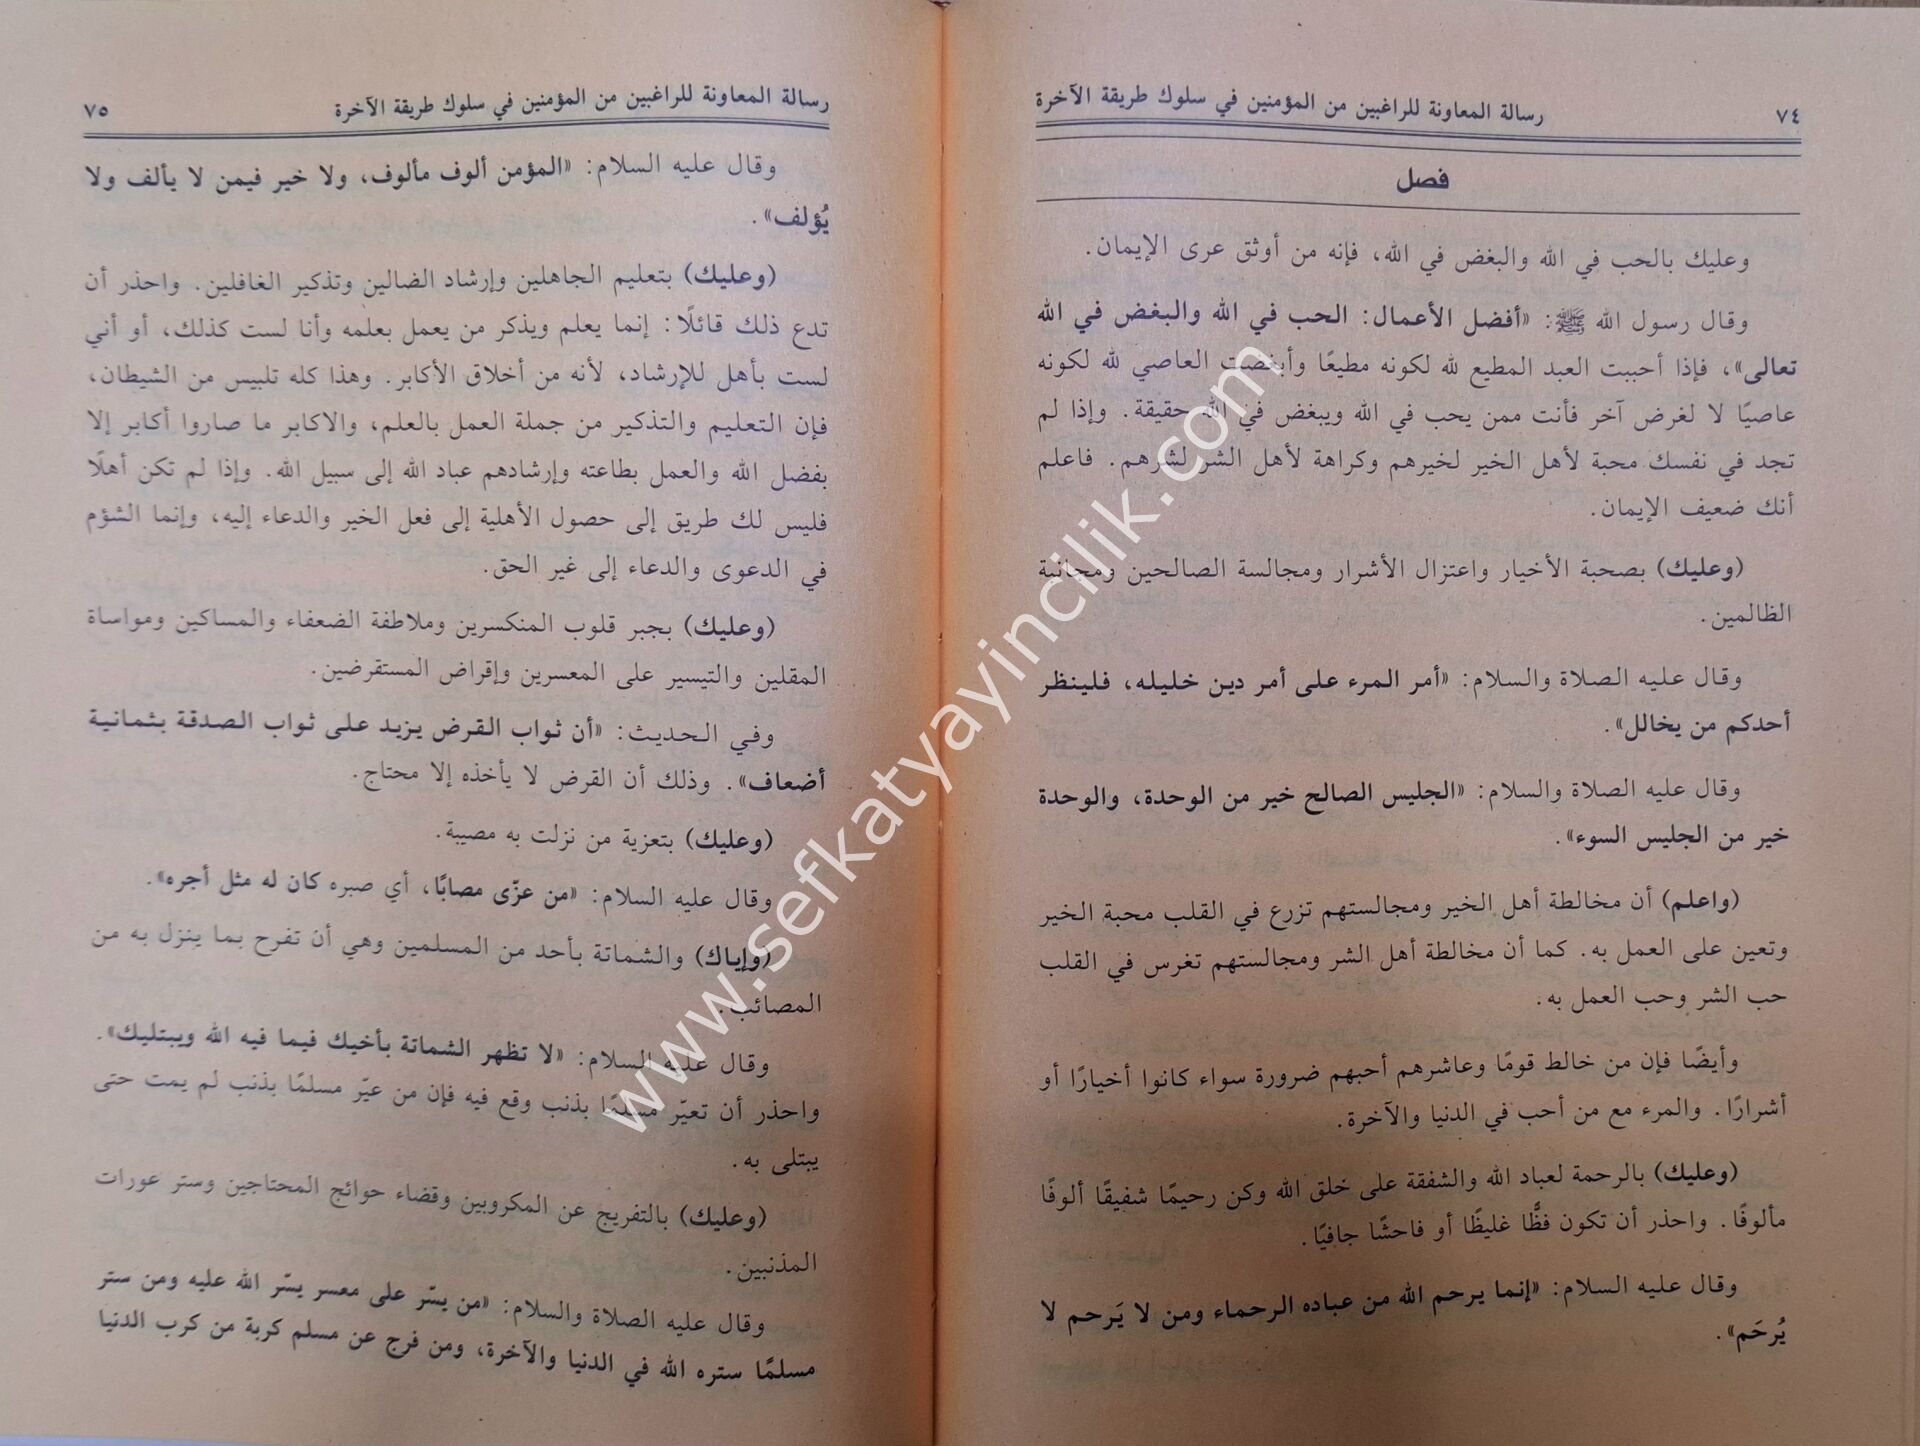 ٧٤ رسالة المعاونة للراغبين من المؤمنين في سلوك طريقة الآخرة
فصل
وعليك بالحب في الله والبغض في الله، فإنه من أوثق عرى الإيمان.
وقال رسول الله ﷺ: «أفضل الأعمال: الحب في الله والبغض في الله
تعالى»، فإذا أحببت العبد المطيع لله لكونه مطيعًا وأبغضت العاصي لله لكونه
عاصيًا لا لغرض آخر فأنت ممن يحب في الله ويبغض في الله حقيقة. وإذا لم
تجد في نفسك محبة لأهل الخير لخيرهم وكراهة لأهل الشر لشرهم. فاعلم
أنك ضعيف الإيمان.
(وعليك) بصحبة الأخيار واعتزال الأشرار ومجالسة الصالحين ومجانبة
الظالمين.
وقال عليه الصلاة والسلام: «أمر المرء على أمر دين خليله، فلينظر
أحدكم من يخالل».
وقال عليه الصلاة والسلام: «الجليس الصالح خير من الوحدة، والوحدة
خير من الجليس السوء».
(واعلم) أن مخالطة أهل الخير ومجالستهم تزرع في القلب محبة الخير
وتعين على العمل به. كما أن مخالطة أهل الشر ومجالستهم تغرس في القلب
حب الشر وحب العمل به.
وأيضًا فإن من خالط قومًا وعاشرهم أحبهم ضرورة سواء كانوا أخيارًا أو
أشرارًا. والمرء مع من أحب في الدنيا والآخرة.
(وعليك) بالرحمة لعباد الله والشفقة على خلق الله وكن رحيمًا شفيقًا ألوفًا
مألوفًا. واحذر أن تكون فظًّا غليظًا أو فاحشًا جافيًا.
وقال عليه السلام: «إنما يرحم الله من عباده الرحماء ومن لا يَرحم لا
يُرحَم».
رسالة المعاونة للراغبين من المؤمنين في سلوك طريقة الآخرة ٧٥
وقال عليه السلام: «المؤمن ألوف مألوف، ولا خير فيمن لا يألف ولا
يُؤلف».
(وعليك) بتعليم الجاهلين وإرشاد الضالين وتذكير الغافلين. واحذر أن
تدع ذلك قائلًا: إنما يعلم ويذكر من يعمل بعلمه وأنا لست كذلك، أو أني
لست بأهل للإرشاد، لأنه من أخلاق الأكابر. وهذا كله تلبيس من الشيطان،
فإن التعليم والتذكير من جملة العمل بالعلم، والاكابر ما صاروا أكابر إلا
بفضل الله والعمل بطاعته وإرشادهم عباد الله إلى سبيل الله. وإذا لم تكن أهلًا
فليس لك طريق إلى حصول الأهلية إلى فعل الخير والدعاء إليه، وإنما الشؤم
في الدعوى والدعاء إلى غير الحق.
(وعليك) بجبر قلوب المنكسرين وملاطفة الضعفاء والمساكين ومواساة
المقلين والتيسير على المعسرين وإقراض المستقرضين.
وفي الحديث: «أن ثواب القرض يزيد على ثواب الصدقة بثمانية
أضعاف». وذلك أن القرض لا يأخذه إلا محتاج.
(وعليك) بتعزية من نزلت به مصيبة.
وقال عليه السلام: «من عزّى مصابًا، أي صبره كان له مثل أجره».
(وإياك) والشماتة بأحد من المسلمين وهي أن تفرح بما ينزل به من
المصائب.
وقال عليه السلام: «لا تظهر الشماتة بأخيك فيما فيه الله ويبتليك».
واحذر أن تعيّر مسلمًا بذنب وقع فيه فإن من عيّر مسلمًا بذنب لم يمت حتى
يبتلى به.
(وعليك) بالتفريج عن المكروبين وقضاء حوائج المحتاجين وستر عورات
المذنبين.
وقال عليه الصلاة والسلام: «من يسّر على معسر يسّر الله عليه ومن ستر
مسلمًا ستره الله في الدنيا والآخرة، ومن فرج عن مسلم كربة من كرب الدنيا
www.sefkatyayincilik.com